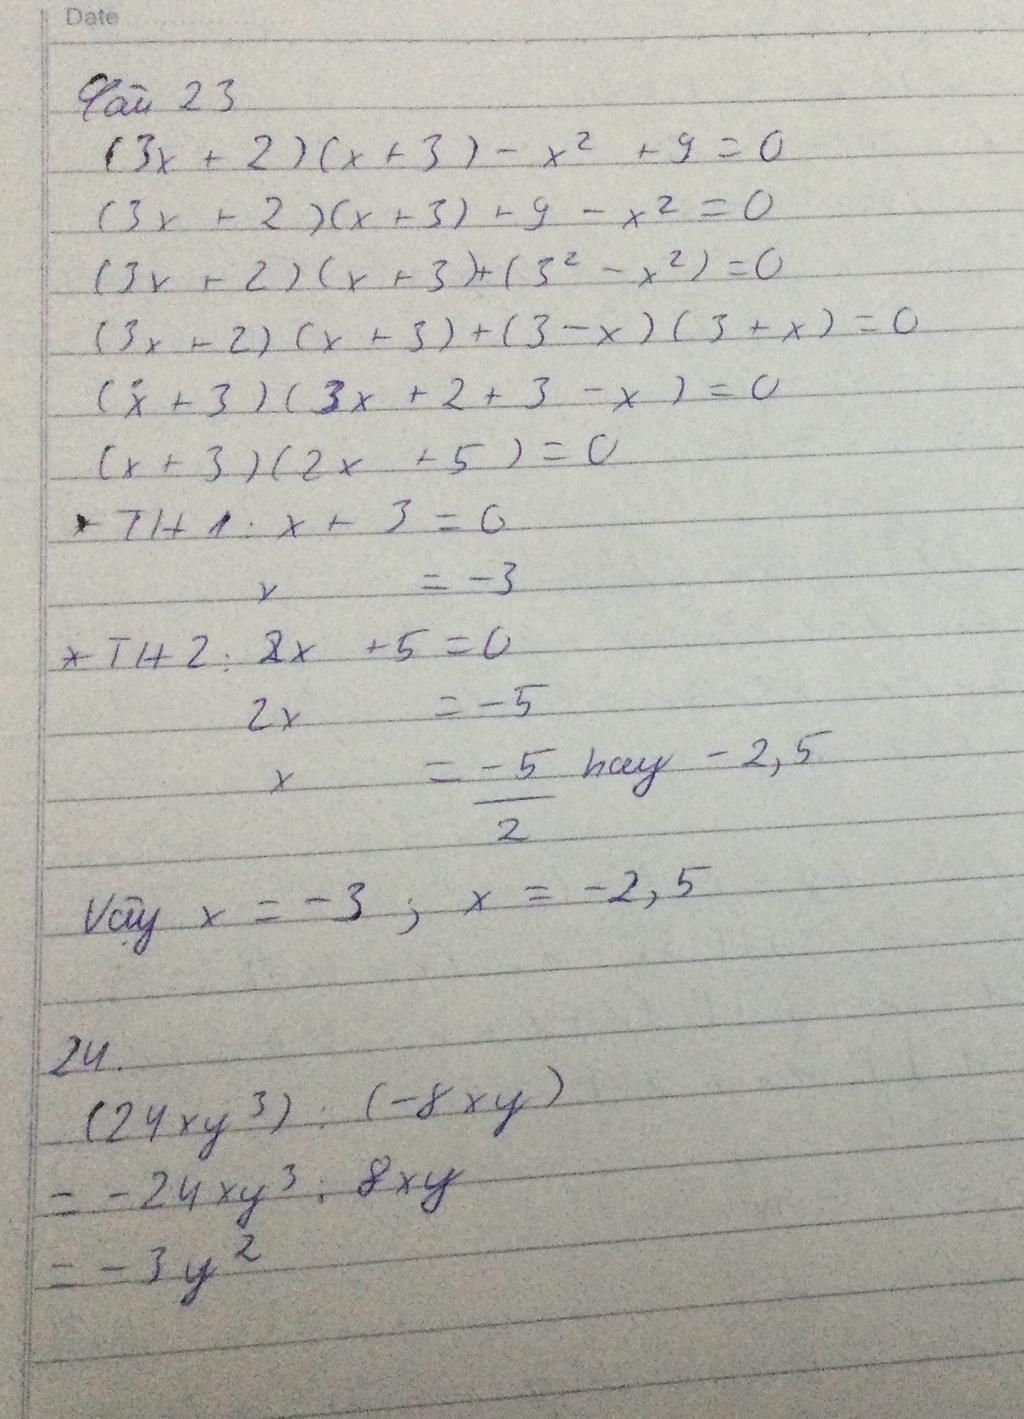 Date
Câu 23
(3x + 2)(x + 3) - x² + 9 = 0
(3x + 2)(x + 3) + 9 - x² = 0
(3x + 2)(x + 3) + (3² - x²) = 0
(3x + 2)(x + 3) + (3 - x)(3 + x) = 0
(x + 3)(3x + 2 + 3 - x) = 0
(x + 3)(2x + 5) = 0
* TH1: x + 3 = 0
x = -3
* TH2: 2x + 5 = 0
2x = -5
x = -5/2 hay -2,5
Vậy x = -3 ; x = -2,5
24.
(24xy³) : (-8xy)
= -24xy³ : 8xy
= -3y²